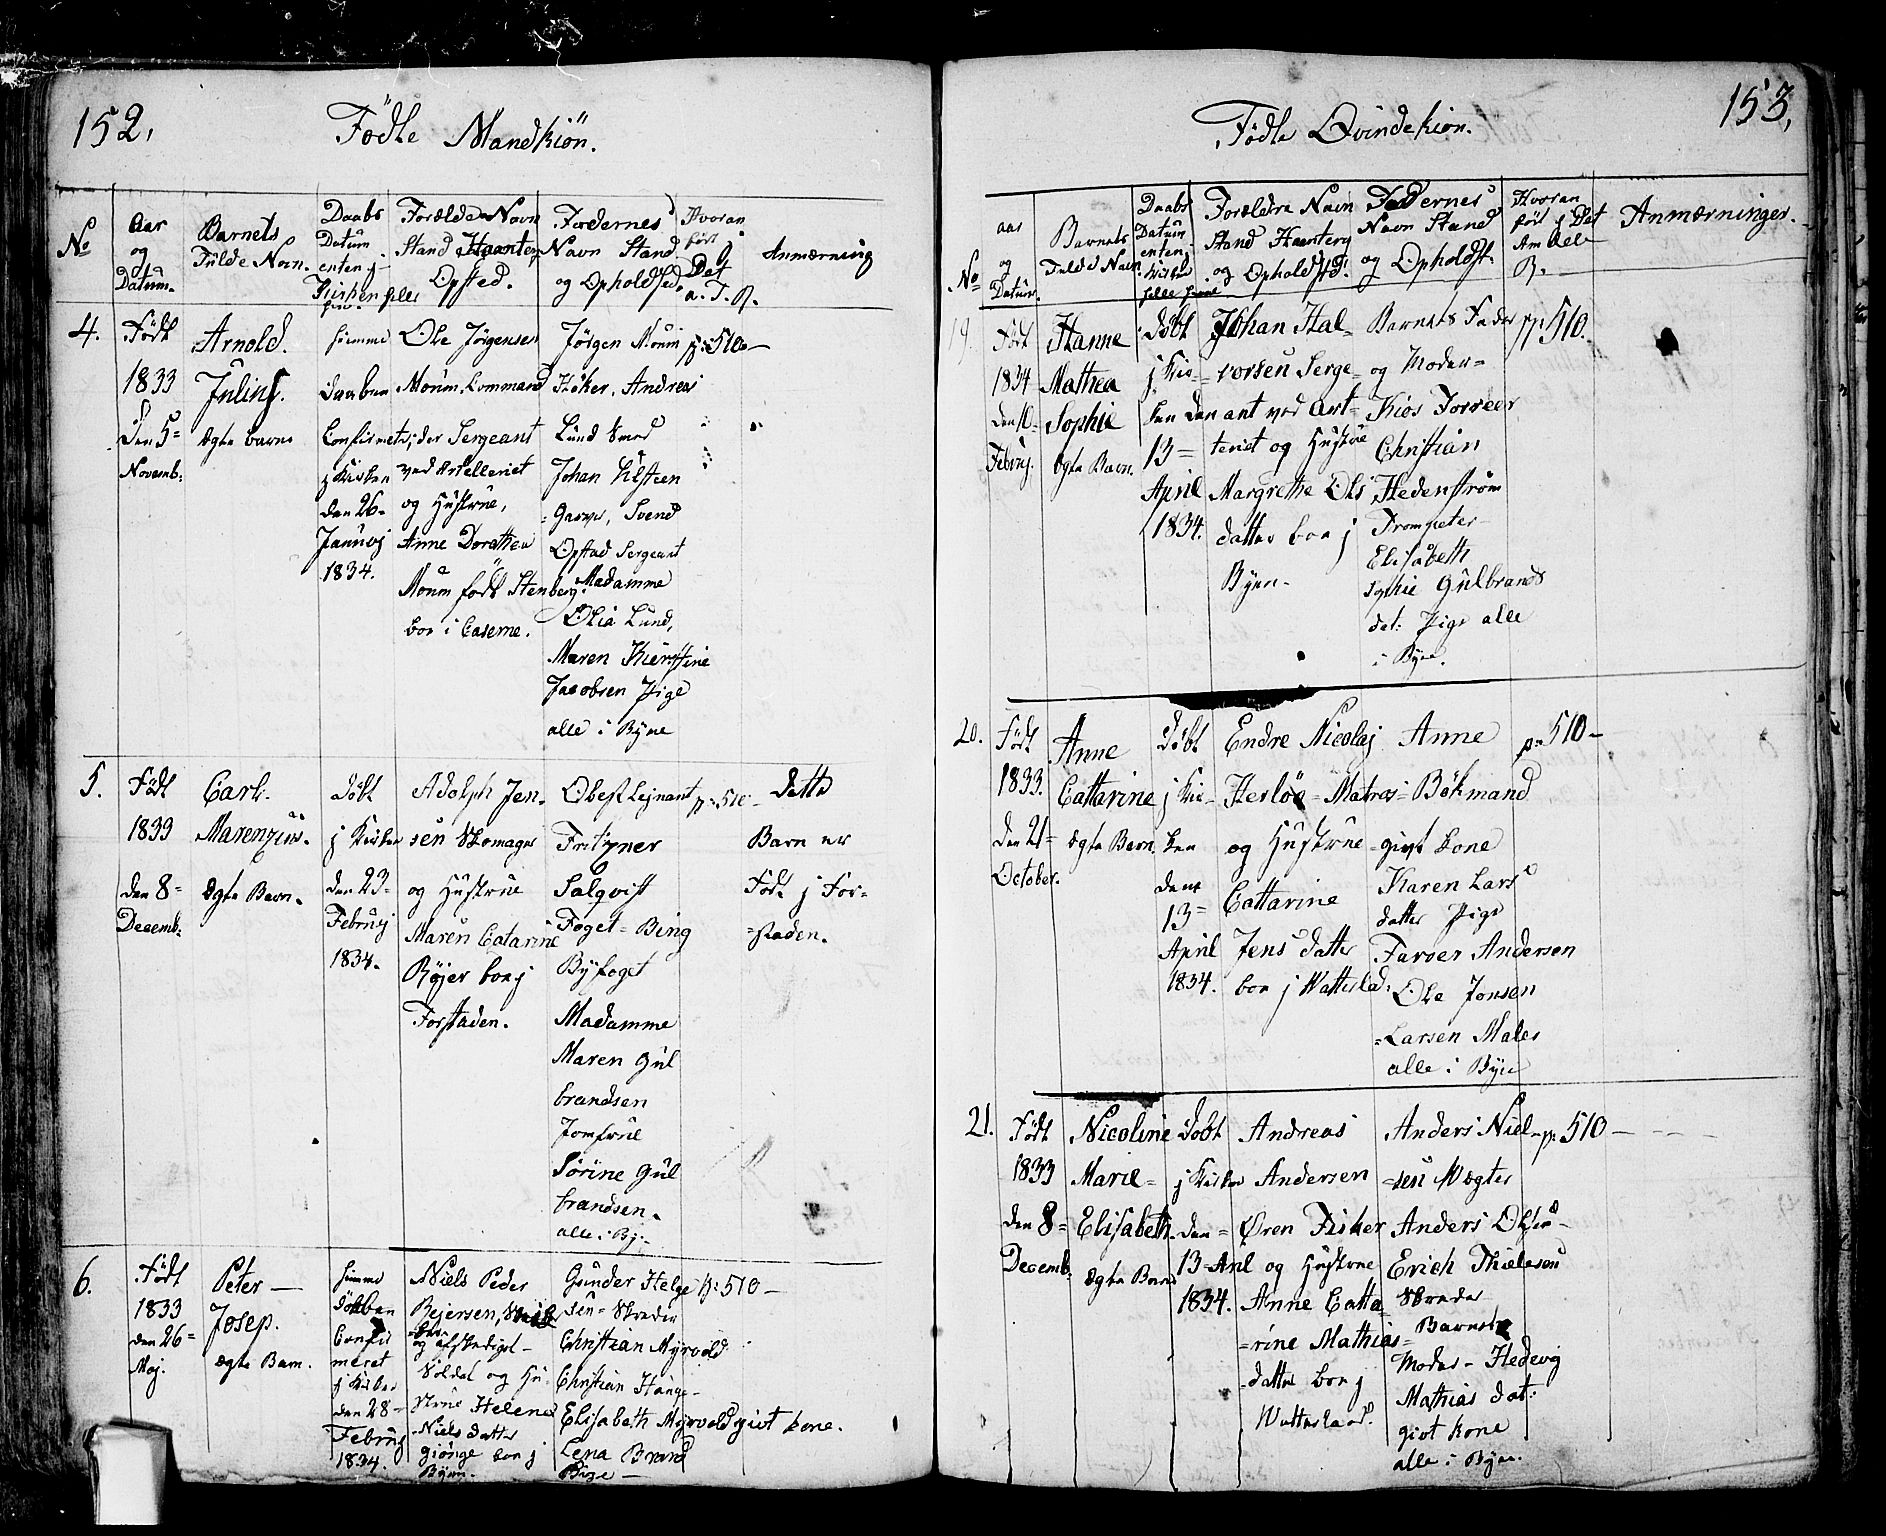 152.
Födte Mandkiön.
No
Aar
og
Datum.
Barnets
Fulde Navn.
Daabs
Datum
enten j
Kirken heller
Forældre Navn
Stand Haantering
Opsted.
Fadernes
Navn Stand
og Opholdsted.
Hvoran
fört
Det
a. T. R.
Anmærning
4.
Födt
1833
Den 5=
Novemb:
Arnold.
Julius.
Ægte barn
hiemme
daaben
Confirmetes
j Kirken
den 26=
Januarj
1834.
Ole Jörgensen
Moum. Command
der Sergeant
ved Artelleriet
og Hustrue,
Anne Dorathea
Moum födt Stenberg.
boe i Caserne.
Jörgen Moum
Höker, Andreas
Lund Smed
Johan
Garver, Svend
Opstad Sergeant
Madamme
Olia Lund,
Maren Kierstine
Jacobsen Pige
alle i Byne
p: 510 —
5.
Födt
1833
den 8=
Decemb:
Carl.
Marenzius.
Ægte Barn.
döbt
j Kirken
den 23=
Februj
1834.
Adolph Jen-
sen Skomager
og Hustrue
Maren Catarine
Röjer boe j
Forstaden.
Oberst Lejnant
Fritzner
Salqvist
Foget= Bing
Byfoget
Madamme
Maren Gul
brandsen
Jomfrue
Sörine Gul
brandsen.
alle i By.
p: 510 —
dette
Barn er
Födt j For=
=staden.
6.
Födt
1833
den 26=
Maj.
Peter —
Josep.
Ægte Barn.
hiemme
döbben
Confir
meret
j Kirken
den 28=
Februj
1834.
Niels Peder
Bejersen,
og afskediget
Soldat og Hu-
strue Helene
Niels datter
giönge boe j
Byen.
Gunder Helge
sen= Skreder
Christian Myrvold
Christian Hauge-
Elisabeth Myrvold givt kone.
Lena Brand
Pige —
p: 510 —
153,
Födte Qvindekiön.
No
aar
og
Datum.
Barnets
Fulde Navn
Daabs
Datum
enten j
Kirken
heller hieme
Forældre Navn
Stand Haantering
og Opholdsted.
Fadernes
Navn Stand
og Opholdst.
Hvoran
fört j Det
Am
R.
Anmærninger.
19.
Födt
1834
Februj.
Hanne
Mathea
Sophie
Ægte Barn.
döbt
j Kir=
ken den
13=
April
1834.
Johan Hal=
vorsen Serge=
ant ved Art=
teriet og Hustrue
Margrethe Ols
datter boe j
Byen-
Barnets Fader
og Moder=
Kios Torveer
Christian
Hedenström
Trompeter
Elisabeth
Sophie Gulbrands
dat: Pige alle
i Byne.
p: 510.
20.
Födt
1833.
den 21=
October.
Anne
Cattarine
Ægte Barn.
döbt
j Kir-
ken
den
13=
April
1834.
Endre Nicolaj
Herlöe= Matros=
og Hustrue
Cattarine
Jens datter
boe j Watterlad:
Anne
Bökmand
=givt kone
Karen Lars
datter Pige
Farver Andersen
Ole Jonsen
=Larsen Maler
alle i Byne
p: 510 —
21.
Födt
1833
den 8=
Decemb.
Nicoline
Marie=
Elisabeth.
Ægte Barn
Döbt
j Kirken
den=
13= Aprl
1834.
Andreas
Andersen
Ören Fisker
og Hustrue
Anne Catta
=rine Mathias=
=datter boe j
Watterland.
Anders Niel-
=sen Wægter
Anders Olsen-
Erich Thielesen
Skreder
Barnets
Moder- Hedevig
Mathias dat:
givt kone
alle i Byne.
p: 510 — — — —